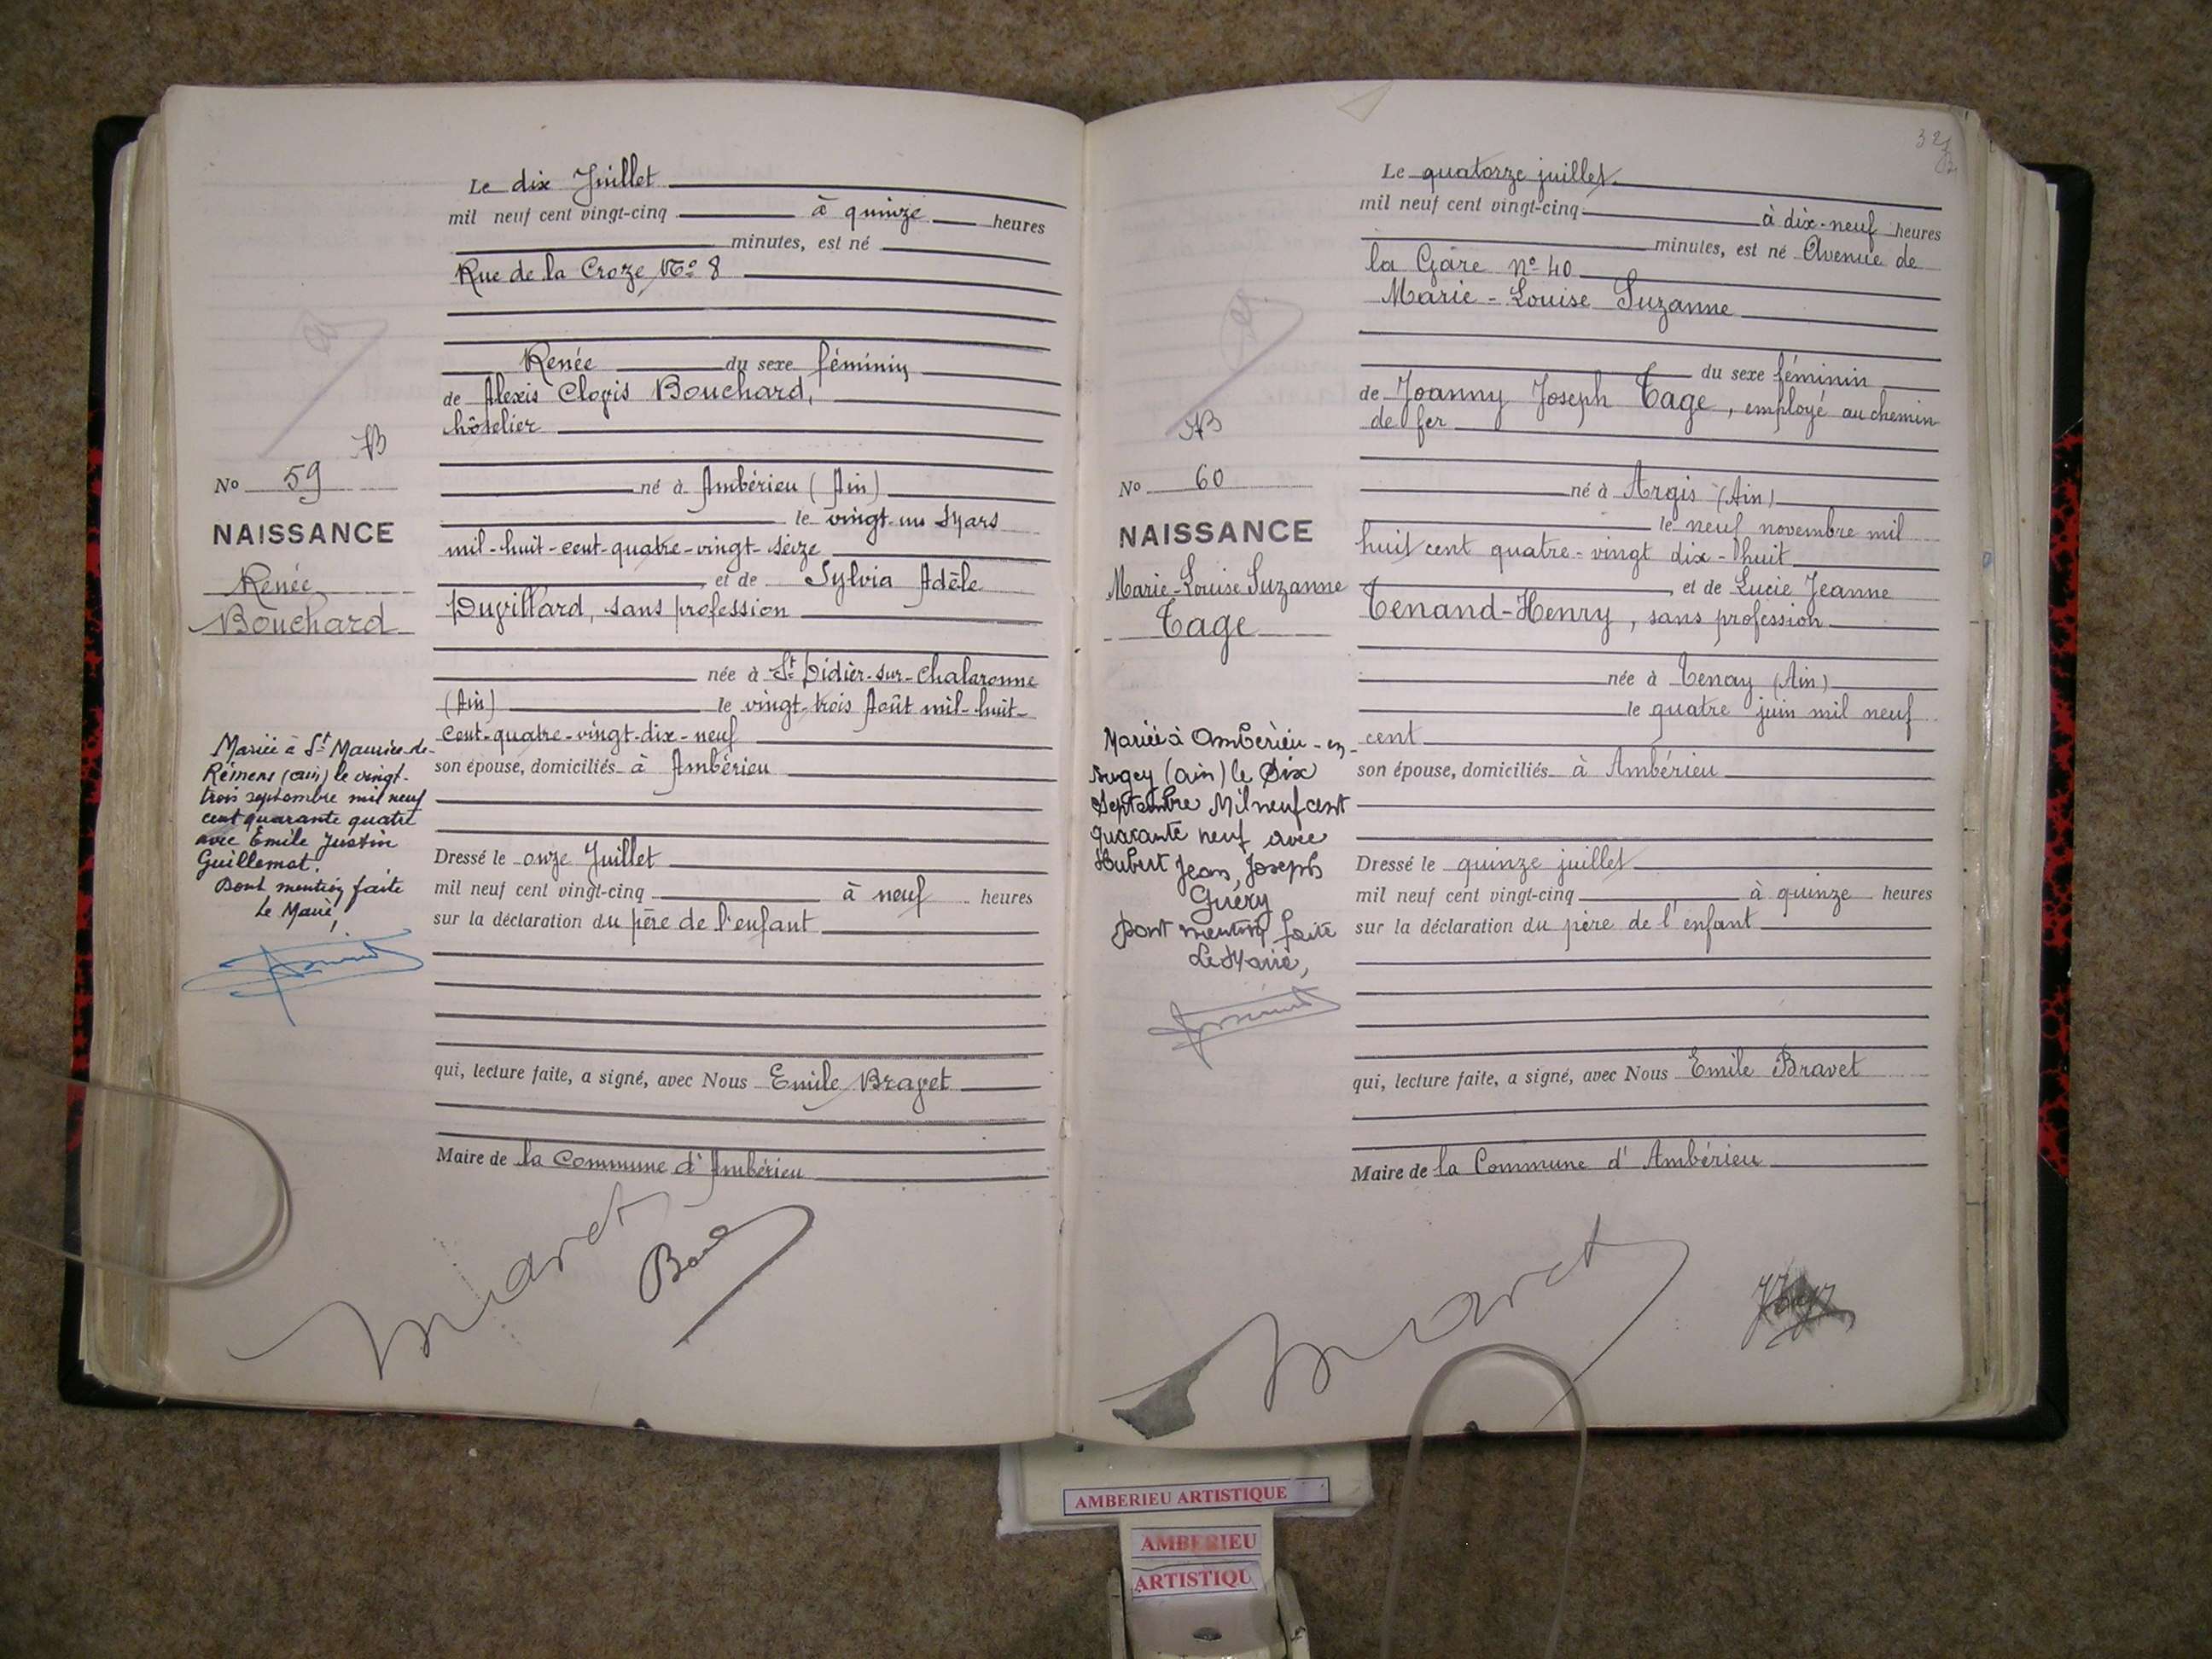 Le dix Juillet
mil neuf cent vingt-cinq à quinze heures
minutes, est né
Rue de la Croze, No 8
Renée du sexe féminin
de Alexis Clovis Bouchard,
hôtelier
né à Ambérieu (Ain)
le vingt-un Mars
mil-huit-cent-quatre-vingt-seize
, et de Sylvia Adèle
Duvillard, sans profession
née à St Didier-sur-Chalaronne
(Ain) le vingt-trois Août mil-huit-
cent-quatre-vingt-dix-neuf
son épouse, domiciliés à Ambérieu
Dressé le onze Juillet
mil neuf cent vingt-cinq à neuf heures
sur la déclaration du père de l'enfant
qui, lecture faite, a signé, avec Nous Emile Bravet
Maire de la Commune d'Ambérieu
No 59
NAISSANCE
Renée
Bouchard
Mariée à St Maurice-de-
Rémens (ain) le vingt-
trois septembre mil neuf
cent quarante quatre
avec Emile Justin
Guillemat.
Dont mention faite
Le Maire,
32
Le quatorze juillet
mil neuf cent vingt-cinq à dix-neuf heures
minutes, est né Avenue de
la Gare no 40
Marie-Louise Suzanne
du sexe féminin
de Joanny Joseph Tage, employé au chemin
de fer
né à Argis (Ain)
le neuf novembre mil
huit cent quatre-vingt dix-huit
, et de Lucie Jeanne
Tenand-Henry, sans profession
née à Tenay (Ain)
le quatre juin mil neuf
cent
son épouse, domiciliés à Ambérieu
Dressé le quinze juillet
mil neuf cent vingt-cinq à quinze heures
sur la déclaration du père de l'enfant
qui, lecture faite, a signé, avec Nous Emile Bravet
Maire de la Commune d'Ambérieu
No 60
NAISSANCE
Marie-Louise Suzanne
Tage
Mariée à Ambérieu-en-
Bugey (ain) le Dix
Septembre Mil neuf cent
quarante neuf avec
Hubert Jean, Joseph
Guéry
Dont mention faite
Le Maire,
AMBERIEU ARTISTIQUE
AMBERIEU
ARTISTIQU